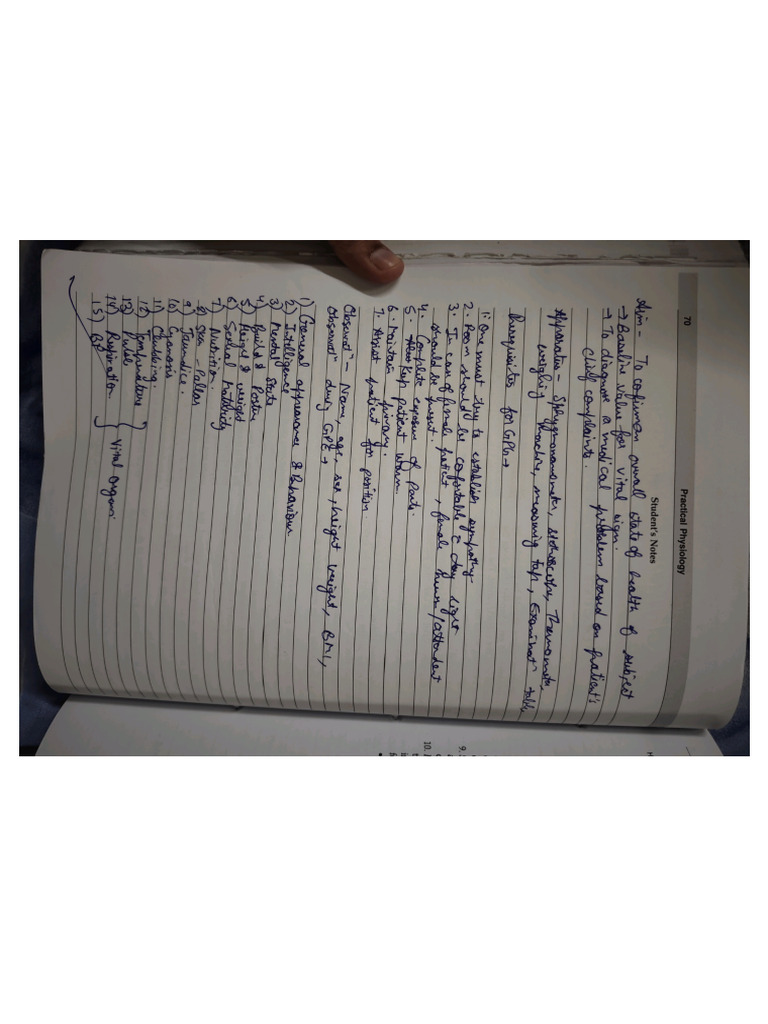 70 Practical Physiology
Student's Notes
Aim - To confirm overall state of health of subject
→ Baseline value for vital sign.
→ To diagnose a medical problem based on patient's
chief complaints.
Apparatus - Sphygmomanometer, stethoscope, Thermometer,
weighing machine, measuring tap, Examinatn table
Prerequisites for GPE →
1. One must try to establish sympathy.
2. Room should be comfortable c day light
3. In case of female patient, female nurse/attendent
should be present.
4. Complete exposure of parts.
5. Keep patient warm.
6. Maintain privacy.
7. Assist patient for position.
Observatn - Name, age, sex, height weight, BMI,
Observatn during GPE →
1) General appearance & Behaviour
2) Intelligence
3) Mental State
4) Build & Posture
5) Height & weight
6) Sexual Maturity
7) Nutrition.
8) Skin - Pallor
9) Jaundice.
10) Cyanosis
11) Clubbing.
12) Temperature
13) Pulse
14) Respiration
15) BP
Vital Organs
9.
10.